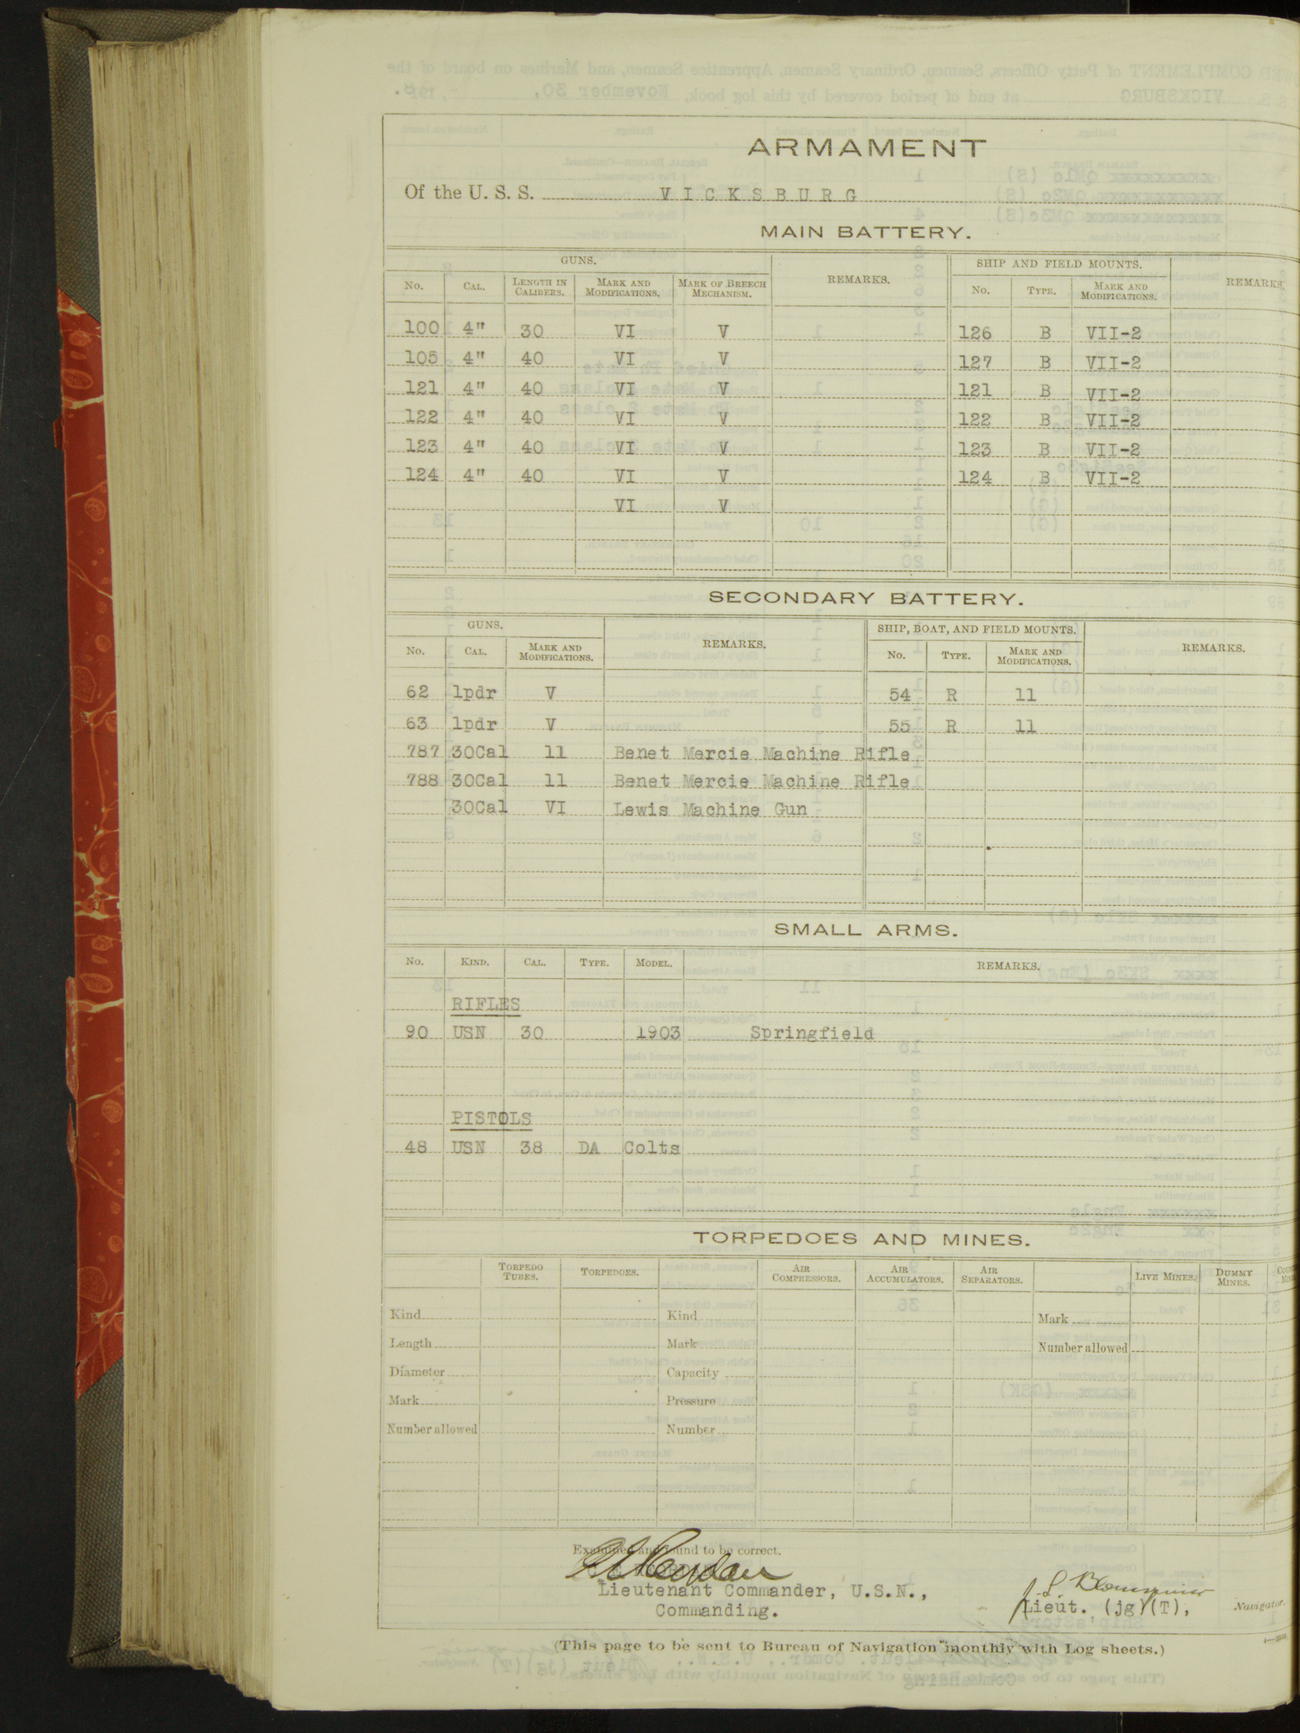 ARMAMENT
Of the U. S. S. VICKSBURG
MAIN BATTERY.
GUNS. REMARKS. SHIP AND FIELD MOUNTS. REMARKS.
No. CAL. LENGTH IN CALIBERS. MARK AND MODIFICATIONS. MARK OF BREECH MECHANISM. No. TYPE. MARK AND MODIFICATIONS.
100 4" 30 VI V 126 B VII-2
105 4" 40 VI V 127 B VII-2
121 4" 40 VI V 121 B VII-2
122 4" 40 VI V 122 B VII-2
123 4" 40 VI V 123 B VII-2
124 4" 40 VI V 124 B VII-2
VI V
SECONDARY BATTERY.
GUNS. REMARKS. SHIP, BOAT, AND FIELD MOUNTS. REMARKS.
No. CAL. MARK AND MODIFICATIONS. No. TYPE. MARK AND MODIFICATIONS.
62 1pdr V 54 R 11
63 1pdr V 55 R 11
787 30Cal 11 Benet Mercie Machine Rifle
788 30Cal 11 Benet Mercie Machine Rifle
30Cal VI Lewis Machine Gun
SMALL ARMS.
No. KIND. CAL. TYPE. MODEL. REMARKS.
RIFLES
90 USN 30 1903 Springfield
PISTOLS
48 USN 38 DA Colts
TORPEDOES AND MINES.
TORPEDO TUBES. TORPEDOES. AIR COMPRESSORS. AIR ACCUMULATORS. AIR SEPARATORS. LIVE MINES. DUMMY MINES.
Kind Kind Mark
Length Mark Number allowed
Diameter Capacity
Mark Pressure
Number allowed Number
Examined and found to be correct.
Lieutenant Commander, U.S.N.,
Commanding.
Lieut. (jg)(T), Navigator.
(This page to be sent to Bureau of Navigation monthly with Log sheets.)